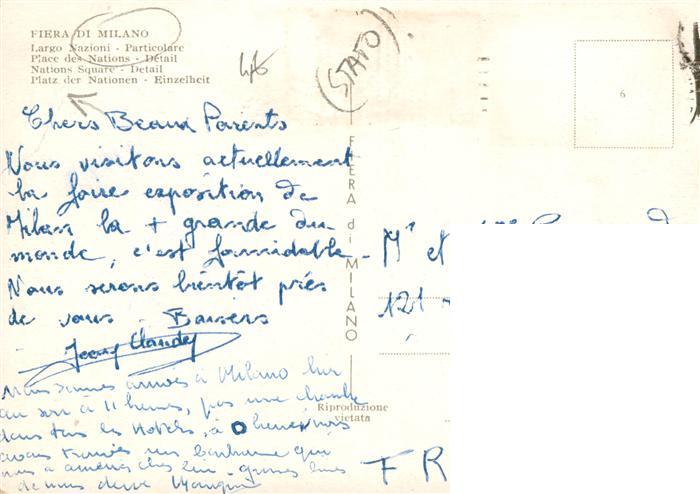 FIERA DI MILANO
Largo Nazioni - Particolare
Place des Nations - Détail
Nations Square - Detail
Platz der Nationen - Einzelheit
(STATO)
6
Chers Beaux Parents
Nous visitons actuellement
la foire exposition de
Milan la + grande du
monde, c'est formidable -
Nous serons bientôt près
de vous - Baisers
Jean Claude
Nous sommes arrivés à Milano hier
au soir à 11 heures, pas une chambre
dans tous les Hotels, à 0 heures nous
avons trouvé un bonhomme qui
nous a amenés chez lui - grosses bises
de nous deux
FIERA di MILANO
Riproduzione
vietata
Mr et
121
FR